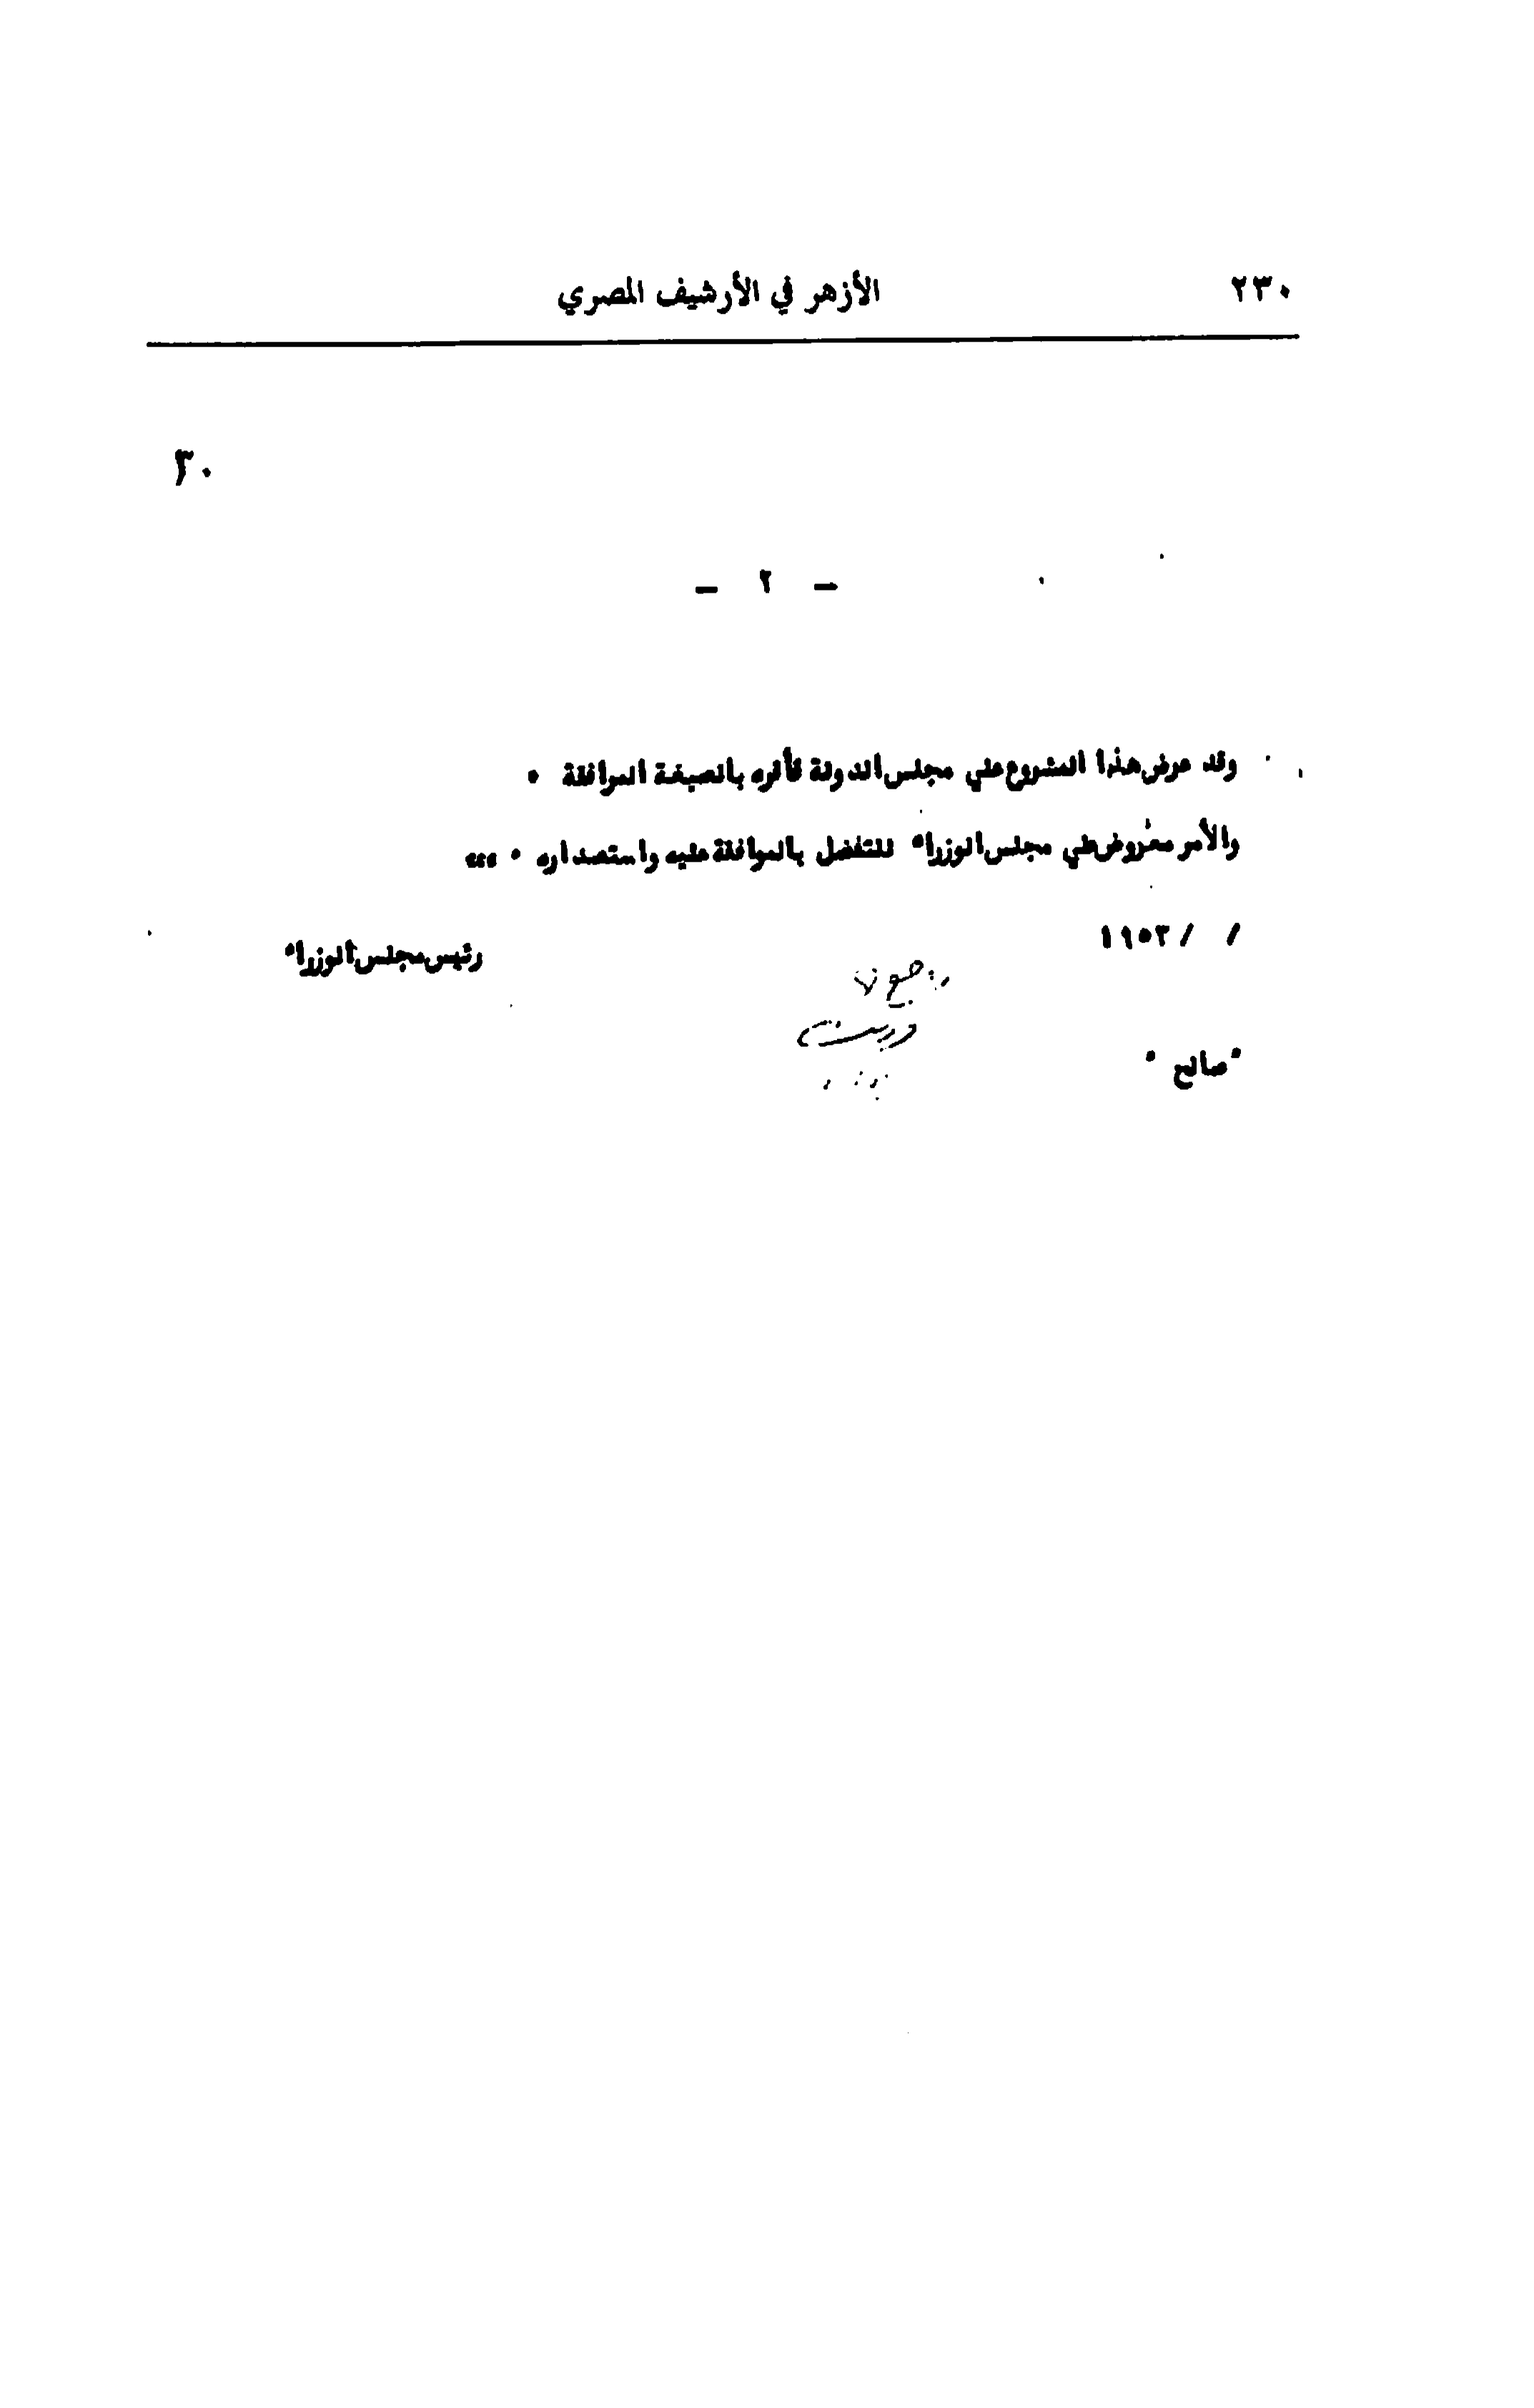 ٢٣٠ الأزهر في الأرشيف المصري
٣٠
- ٢ -
وقد عرض هذا المشروع علي مجلس الدولة فأقره بالصيغة المرافقة ٠
والأمر معروض علي مجلس الوزراء للتفضل بالموافقة عليه واستصداره ٠ ،،،
/ / ١٩٥٣
رئيس مجلس الوزراء
"صالح "